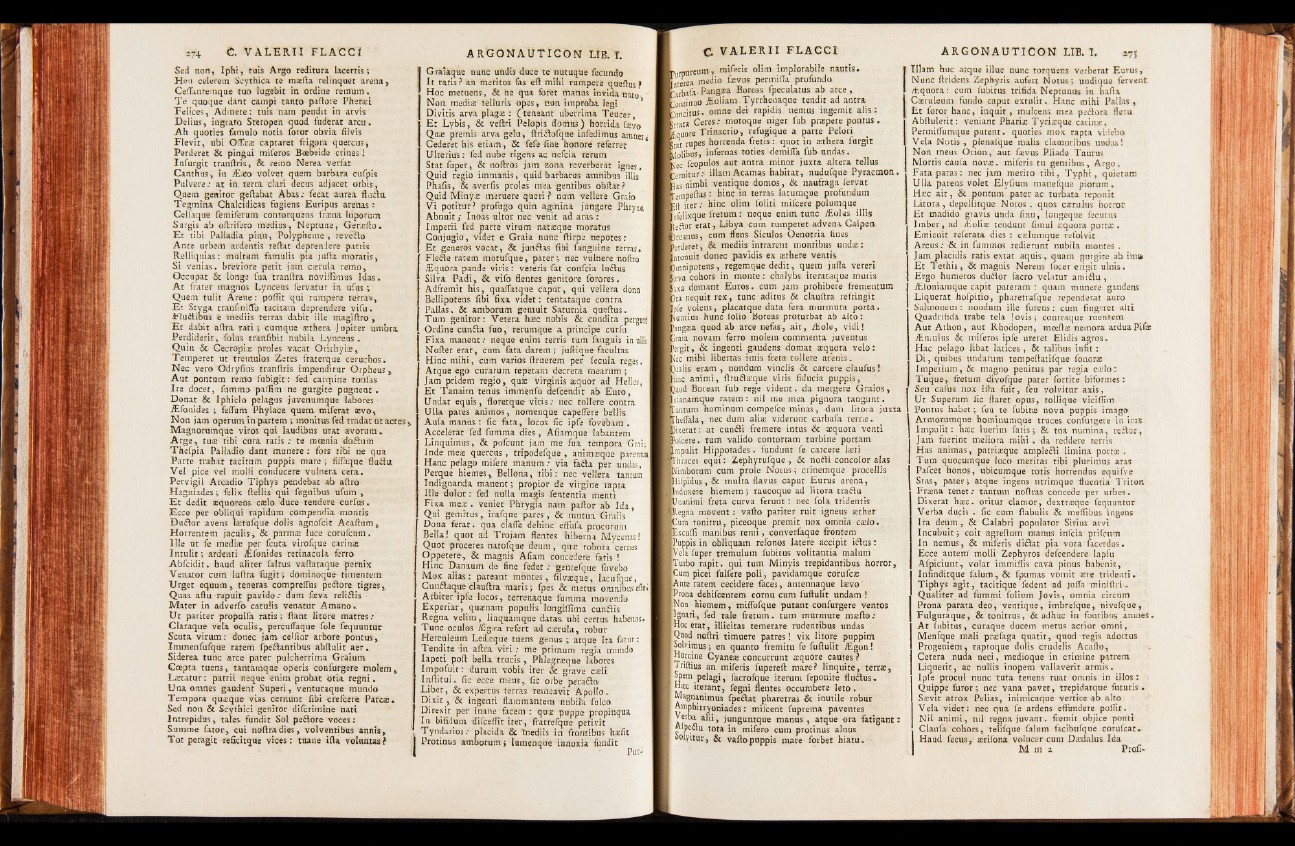 274 C. VALERII FLACCI
Sed non, Iphi, tuis Argo reditura lacertis;
Heu celerem Scythica te mæsta relinquet arena,
Cessantemque tuo lugebit in ordine remum.
Te quoque dant campi tanto pastore Pheræi
Felices, Admete: tuis nam pendit in arvis
Delius, ingrato Steropen quod fuderat arcu.
Ah quoties famulo notis soror obvia silvis
Flevit, ubi Ossææ captaret frigora quercus,
Perderet & pingui miseros Bæbeide crines!
Insurgit transtris, & remo Nerea versat
Canthus, in Ææo volvet quem barbara cuspis
Pulvere: at in terra clari decus adjacet orbis,
Quem genitor gestabat Abas: secat aurea fluctu
Tegmina Chalcidicas fugiens Euripus arenas:
Celsaque semiferum contorquens frena luporum
Surgis ab ostrifero medius, Neptune, Geræsto.
Et tibi Palladia pinu, Polypheme, revecto
Ante urbem ardentis restat deprendere patris
Relliquias: multum famulis pia justa moratis,
Si venias. breviore petit jam cærula remo,
Occupat & longe sua transtra novissimus Idas.
At frater magnos Lynceus servatur in usus;
Quem tulit Arene: possit qui rumpere terras,
Et Styga transmisso tacitam deprendere visu.
Fluctibus e mediis terras dabit ille magistro,
Et dabit astra rati; cumque æthera Jupiter umbra
Perdiderit, solus transibit nubila Lynceus.
Quin & Cecropiæ proles vacat Orithyiæ,
Temperet ut tremulos Zetes fraterque ceruchos.
Nec vero Odrysius transtris impenditur Orpheus,
Aut pontum remo subigit: sed carmine tonsas
Ire docet, summo passim ne gurgite pugnent.
Donat & Iphiclo pelagus juvenumque labores
Æsonides; fessum Phylace quem miserat ævo,
Non jam operum in partem; monitus sed tradat ut acres,
Magnorumque viros qui laudibus urat avorum.
Arge, tuæ tibi cura ratis: te mœnia doctum
Thespia Palladio dant munere: sors tibi ne qua
Parte trahat tacitum puppis mare; fissaque fluctu
Vel pice vel molli conducere vulnera cera.
Pervigil Arcadio Tiphys pendebat ab astro
Hagniades; felix stellis qui segnibus usum,
Et dedit æquoreos cælo duce tendere cursus.
Ecce per obliqui rapidum compendia montis
Ductor avens lætusque dolis agnoscit Acastum,
Horrentem jaculis, & parmæ luce coruscum.
Ille ut se mediæ per scuta virosque carinæ
Intulit; ardenti Æsonides retinacula ferro
Abscidit. haud aliter saltus vastataque pernix
Venator cum lustra fugit; dominoque timentem
Urget equum, teneras compressus pectore tigres,
Quas astu rapuit pavido: dum sæva relictis
Mater in adverso catulis venatur Amano.
It pariter propulsa ratis; stant litore matres:
Claraque vela oculis, percussaque sole sequuntur
Scuta virum: donec jam celsior arbore pontus,
Immensusque ratem spectantibus abstulit aer.
Siderea tunc arce pater pulcherrima Graium
Cœpta tuens, tantamque operis consurgere molem,
Lætatur: patrii neque enim probat otia regni.
Una omnes gaudent Superi, venturaque mundo
Tempora quæque vias cernunt sibi crescere Parcæ.
Sed non & Scythici genitor discrimine nati
Intrepidus, tales fundit Sol pectore voces:
Summe sator, cui nostra dies, volventibus annis,
Tot peragit reficitque vices: tuane ista voluntas?
ARGONAUTICON LIB. I.
Graiaque nunc undis duce te nutuque secundo
It ratis? an meritos fas est mihi rumpere questus?
Hoc metuens, & ne qua foret manus invida nato,
Non mediæ telluris opes, non improba legi
Divitis arva plagæ: (teneant uberrima Teucer,
Et Lybis, & vestri Pelopis domus) horrida sævo
Quæ premis arva gelu, strictosque insedimus amnes;
Cederet his etiam, & sese sine honore referret
Ulterius: sed nube rigens ac nescia rerum
Stat super, & nostros jam zona reverberat ignes.
Quid regio immanis, quid barbarus amnibus illis
Phasis, & aversis proles mea gentibus obstat?
Quid Minyæ meruere queri? num vellere Graio
Vi potitur? profugo quin agmina jungere Phryxo
Abnuit; Inoas ultor nec venit ad aras:
Imperii sed parte virum natæque moratus
Conjugio, videt e Graia nunc stirpe nepotes:
Et generos vocat, & junctas sibi sanguine terras.
Flecte ratem motusque, pater; nec vulnere nostro
Æquora pande viris: veteris sat conscia luctus
Silva Padi, & viso flentes genitore sorores.
Adfremit his, quassatque caput, qui vellera dono
Bellipotens sibi fixa videt: tentataque contra
Pallas. & amborum gemuit Saturnia questus.
Tum genitor: Vetera hæc nobis & condita pergunt
Ordine cuncta suo, rerumque a principe cursu
Fixa manent: neque enim terris tum sanguis in ullis
Noster erat, cum fata darem; justique facultas
Hinc mihi, cum varios struerem per secula reges.
Atque ego curarum repetam decreta mearum;
Jam pridem regio, quæ virginis æquor ad Helles,
Et Tanaim tenus immenso descendit ab Euro,
Undat equis, floretque viris: nec tollere contra
Ulla pares animos, nomenque capessere bellis
Ausa manus: sic fata, locos sic ipse fovebam.
Accelerat sed summa dies, Asiamque labantem
Linquimus, & poscunt jam me sua tempora Graii.
Inde meæ quercus, tripodesque, animæque parentum
Hanc pelago misere manum: via facta per undas,
Perque hiemes, Bellona, tibi: nec vellera tantum
Indignanda manent; propior de virgine rapta
Ille dolor: sed nulla magis sententia menti
Fixa meæ. veniet Phrygia nam pastor ab Ida,
Qui gemitus, irasque pares, & mutua Graiis
Dona ferat. qua classe dehinc effusa procorum
Bella! quot ad Trojam flentes hiberna Mycenas!
Quot proceres natosque deum, quæ robora cernes
Oppetere, & magnis Asiam concedere fatis!
Hinc Danaum de fine sedet: gentesque fovebo
Mox alias: pateant montes, silvæque, lacusque,
Cunctaque claustra maris; spes & metus omnibus esto.
Arbiter ipse locos, terrenaque summa movendo
Experiar, quænam populis longissima cunctis
Regna velim, linquamque datas ubi certus habenas.
Tunc oculos Ægæa refert ad cærula, robur
Herculeum Ledæque tuens genus; atque ita fatur:
Tendite in astra viri: me primum regia mundo
Iapeti post bella trucis, Phlegræque labores
Imposuit: durum vobis iter & grave cæli
Institui. sic ecce meus, sic orbe peracto
Liber, & expertus terras remeavit Apollo.
Dixit, & ingenti flammantem nubila sulco
Direxit per inane facem: quæ puppe propinqua
In bifidum discessit iter, fratresque petivit
Tyndarios: placida & mediis in frontibus hæsit
Protinus amborum; lumenque innoxia fundit
Pur-
C. VALERII FLACCI
Purpureum, miseris olim implorabile nautis.
Interea medio sævus permissa profundo
Carbasa Pangæa Boreas speculatus ab arce,
Continuo Æoliam Tyrrhenaque tendit ad antra
Concitus. omne dei rapidis nemus ingemit alis:
Strata Ceres: motoque niger sub præpete pontus.
Æquore Trinacrio, refugique a parte Pelori
Stat rupes horrenda fretis: quot in æthera surgit
Molibus, infernas toties demissa sub undas.
Nec scopulos aut antra minor juxta altera tellus
Cernitur: illam Acamas habitat, nudusque Pyracmon.
Has nimbi ventique domos, & naufraga servat
Tempestas: hinc in terras latumque profundum
Est iter: hinc olim soliti miscere polumque
Infelixque fretum: neque enim tunc Æolus illis
Rector erat, Libya cum rumperet advena Calpen
Oceanus, cum flens Siculos Oenotria fines
Perderet, & mediis intrarent montibus undæ:
Intonuit donec pavidis ex æthere ventis
Omnipotens, regemque dedit, quem jussa vereri
Sæva cohors in monte: chalybs iterataque muris
Saxa domant Euros. cum jam prohibere frementum
Ora nequit rex, tunc aditus & claustra refringit
Ipse volens, placatque data fera murmura porta.
Nuntius hunc solio Boreas proturbat ab alto:
Pangæa quod ab arce nefas, ait, Æole, vidi!
Graia novam ferro molem commenta juventus
Pergit, & ingenti gaudens domat æquora velo:
Nec mihi libertas imis freta tollere arenis.
Qualis eram, nondum vinclis & carcere clausus!
Hinc animi, structæque viris fiducia puppis,
Quod Borean sub rege vident. da mergere Graios,
Insanamque ratem: nil me mea pignora tangunt.
Tantum hominum compesce minas, dum litora juxta
Thessala, nec dum aliæ viderunt carbasa terræ.
Dixerat: at cuncti fremere intus & æquora venti
Poscere. tum valido contortam turbine portam
Impulit Hippotades. fundunt se carcere læti
Thraces equi: Zephyrusque, & nocti concolor alas
Nimborum cum prole Notus; crinemque procellis
Hispidus, & multa flavus caput Eurus arena,
Induxere hiemem; raucoque ad litora tractu
Unanimi freta curva ferunt: nec sola tridentis
Regna movent: vasto pariter ruit igneus æther
Cum tonitru, piceoque premit nox omnia cælo.
Excussi manibus remi, conversaque frontem
Puppis in obliquum resonos latere accipit ictus:
Vela super tremulum subitus volitantia malum
Turbo rapit. qui tum Minyis trepidantibus horror,
Cum picei fulsere poli, pavidamque coruscæ
Ante ratem cecidere faces, antennaque lævo
Prona dehiscentem cornu cum sustulit undam!
Non hiemem, missosque putant consurgere ventos
Ignari, sed tale fretum. tum murmure mæsto:
Hoc erat, illicitas temerare rudentibus undas
Quod nostri timuere patres! vix litore puppim
Solvimus; en quanto fremitu se sustulit Ægon!
Hoccine Cyaneæ concurrunt æquore cautes?
Tristius an miseris superest mare? linquite, terræ,
Spem pelagi, sacrosque iterum seponite fluctus.
Hæc iterant, segni flentes occumbere leto.
Magnanimus spectat pharetras & inutile robur
Amphitryoniades: miscent suprema paventes
Verba alii, junguntque manus, atque ora fatigant:
Aspectu tota in misero cum protinus alnus
Solvitur, & vasto puppis mare sorbet hiatu.
ARGONAUTICON LIB. I. 275
Illam huc atque illuc nunc torquens verberat Eurus,
Nunc stridens Zephyris aufert Notus; undique fervent
Æquora: cum subitus trifida Neptunus in hasta
Cæruleum fundo caput extulit. Hanc mihi Pallas,
Et soror hanc, inquit, mulcens mea pectora fletu
Abstulerit: veniant Phariæ Tyriæque carinæ,
Permissumque putent. quoties mox rapta videbo
Vela Notis, plenasque malis clamoribus undas!
Non meus Orion, aut sævus Pliade Taurus
Mortis causa novæ. miseris tu gentibus, Argo,
Fata paras: nec jam merito tibi, Typhi, quietum
Ulla parens volet Elysium manesque piorum.
Hæc ait, & pontum pater ac turbata reponit
Litora, depellitque Notos. quos cærulus horror
Et madido gravis unda sinu, longeque secutus
Imber, ad Æoliæ tendunt simul æquora portæ.
Emicuit reserata dies: cælumque resolvit
Arcus: & in summos redierunt nubila montes.
Jam placidis ratis extat aquis, quam gurgite ab imo
Et Tethis, & magnis Nereus socer erigit ulnis.
Ergo humeros ductor sacro velatur amictu,
Æsoniamque capit pateram: quam munere gaudens
Liquerat hospitio, pharetrasque rependerat auro
Salmoneus: nondum ille furens: cum fingeret alti
Quadrifida trabe tela Jovis, contraque ruentem
Aut Athon, aut Rhodopen, mœstæ nemora ardua Pisæ
Æmulus & miseros ipse ureret Elidis agros.
Hac pelago libat latices, & talibus infit:
Di, quibus undarum tempestatisque sonoræ
Imperium, & magno penitus par regia cælo:
Tuque, fretum divosque pater sortite biformes:
Seu casus nox ista fuit, seu volvitur axis,
Ut Superum sic staret opus, tollique vicissim
Pontus habet; seu te subitæ nova puppis imago
Armorumque hominumque truces consurgere in iras
Impulit: hæc luerim satis; & tua numina, rector,
Jam fuerint meliora mihi. da reddere terris
Has animas, patriæque amplecti limina portæ.
Tum quocunque loco meritas tibi plurimus aras
Pascet honos, ubicumque rotis horrendus equisve
Stas, pater; atque ingens utrimque fluentia Triton
Fræna tenet: tantum nostras concede per urbes.
Verba ducis. sic cum stabulis & messibus ingens
Ira deum, & Calabri populator Sirius arvi
Incubuit; coit agrestum manus inscia priscum
In nemus, & miseris dictat pia vora sacerdos.
Ecce autem molli Zephyros descendere lapsu
Aspiciunt, volat immissis cava pinus habenis,
Infinditque salum, & spumas vomit ære tridenti.
Tiphys agit, tacitique sedent ad jussa ministri.
Qualiter ad summi solium Jovis, omnia circum
Prona parata deo, ventique, imbresque, nivesque,
Fulguraque, & tonitrus, & adhuc in fontibus amnes.
At subitus, curaque ducem metus acrior omni,
Mensque mali præsaga quatit, quod regis adortus
Progeniem, raptoque dolis crudelis Acasto,
Cetera nuda neci, medioque in crimine patrem
Liquerit, ac nullis inopem vallaverit armis.
Ipse procul nunc tuta tenens ruat omnis in illos:
Quippe furor; nec vana pavet, trepidatque futuris.
Sævit atrox Pelias, inimicaque vertice ab alto
Vela videt: nec qua se ardens effundere possit.
Nil animi, nil regna juvant. fremit objice ponti
Clausa cohors, telisque salum facibusque coruscat.
Haud secus, ærisona volucer cum Dædalus Ida
M m 2 Prosi-